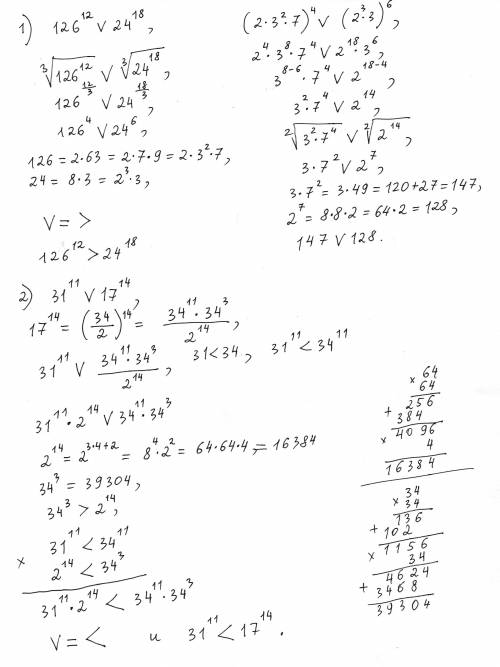 1) 126^12 ∨ 24^18,
∛(126^12) ∨ ∛(24^18),
126^(12/3) ∨ 24^(18/3),
126^4 ∨ 24^6,
126 = 2·63 = 2·7·9 = 2·3^2·7,
24 = 8·3 = 2^3·3,
∨ = >
126^12 > 24^18
(2·3^2·7)^4 ∨ (2^3·3)^6,
2^4·3^8·7^4 ∨ 2^18·3^6,
3^(8-6)·7^4 ∨ 2^(18-4),
3^2·7^4 ∨ 2^14,
²√(3^2·7^4) ∨ ²√(2^14),
3·7^2 ∨ 2^7,
3·7^2 = 3·49 = 120+27 = 147,
2^7 = 8·8·2 = 64·2 = 128,
147 ∨ 128.
2) 31^11 ∨ 17^14,
17^14 = (34/2)^14 = (34^11·34^3)/2^14,
31^11 ∨ (34^11·34^3)/2^14, 31<34, 31^11 < 34^11
31^11·2^14 ∨ 34^11·34^3
2^14 = 2^(3·4+2) = 8^4·2^2 = 64·64·4, = 16384
34^3 = 39304,
34^3 > 2^14,
31^11 < 34^11
×
2^14 < 34^3
31^11·2^14 < 34^11·34^3
∨ = < и 31^11 < 17^14.
× 64
64
256
+ 384
4096
× 4
16384
× 34
34
136
+ 102
1156
× 34
4624
+ 3468
39304